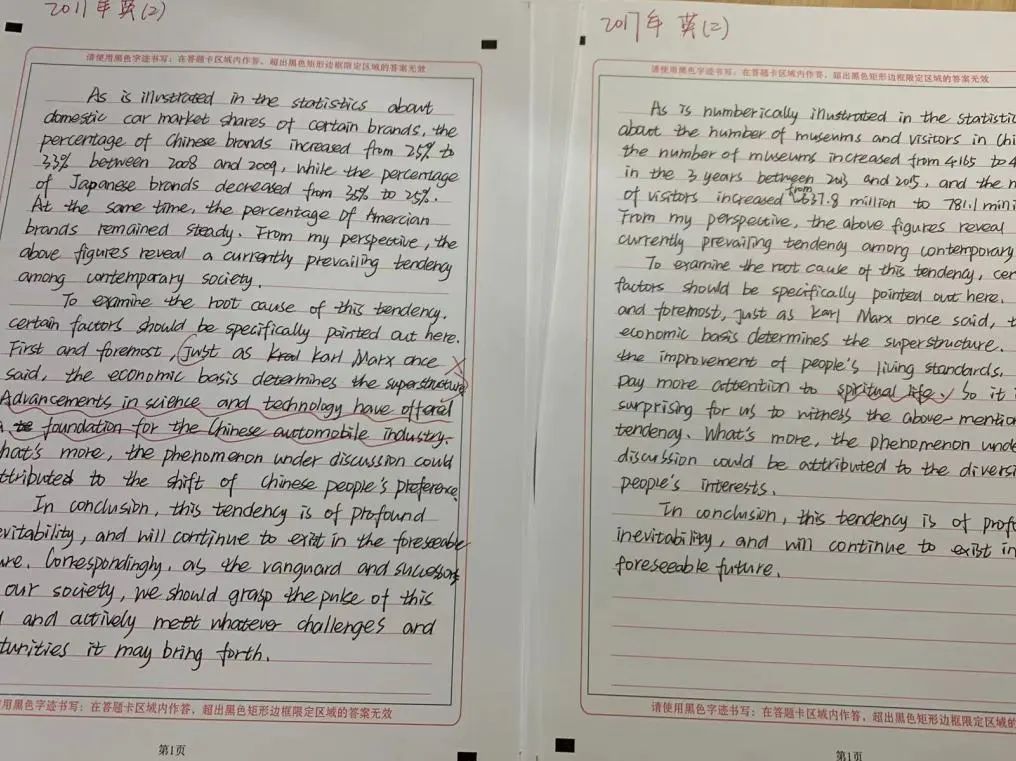 2011年 英(2)
请使用黑色字迹书写：在答题卡区域内作答，超出黑色矩形边框限定区域的答案无效
As is illustrated in the statistics about
domestic car market shares of certain brands, the
percentage of Chinese brands increased from 25% to
33% between 2008 and 2009, while the percentage
of Japanese brands decreased from 35% to 25%.
At the same time, the percentage of Amercian
brands remained steady. From my perspective, the
above figures reveal a currently prevailing tendency
among contemporary society.
To examine the root cause of this tendency,
certain factors should be specifically pointed out here.
First and foremost, just as Karl Marx once
said, the economic basis determines the superstructure
Advancements in science and technology have offered
foundation for the Chinese automobile industry.
hat's more, the phenomenon under discussion could
ttributed to the shift of Chinese people's preference.
In conclusion, this tendency is of profound
evitability, and will continue to exist in the foreseeable
ure. Correspondingly, as the vanguard and successors
our society, we should grasp the pulse of this
and actively meet whatever challenges and
tunities it may bring forth.
使用黑色字迹书写：在答题卡区域内作答，超出黑色矩形边框限定区域的答案无效
第1页
2017年 英(二)
请使用黑色字迹书写：在答题卡区域内作答，超出黑色矩形边框限定区域的答案无效
As is numberically inustrated in the statistic
about the number of museums and visitors in Chi
the number of museums increased from 4165 to 4
in the 3 years between 2013 and 2015, and the n
of visitors increased from 637.8 million to 781.1 mini
From my perspective, the above figures reveal
currently prevailing tendency among contemporary
To examine the root cause of this tendency, cer
factors should be specifically pointed out here.
and foremost, just as Karl Marx once said, t
economic basis determines the superstructure.
the improvement of people's living standards,
pay more attention to spiritual life, So it i
surprising for us to witness the above-mention
tendency. What's more, the phenomenon unde
discussion could be attributed to the diversi
people's interests.
In conclusion, this tendency is of prof
inevitability, and will continue to exist in
foreseeable future.
请使用黑色字迹书写：在答题卡区域内作答，超出黑色矩形边框限定区域的
第1页